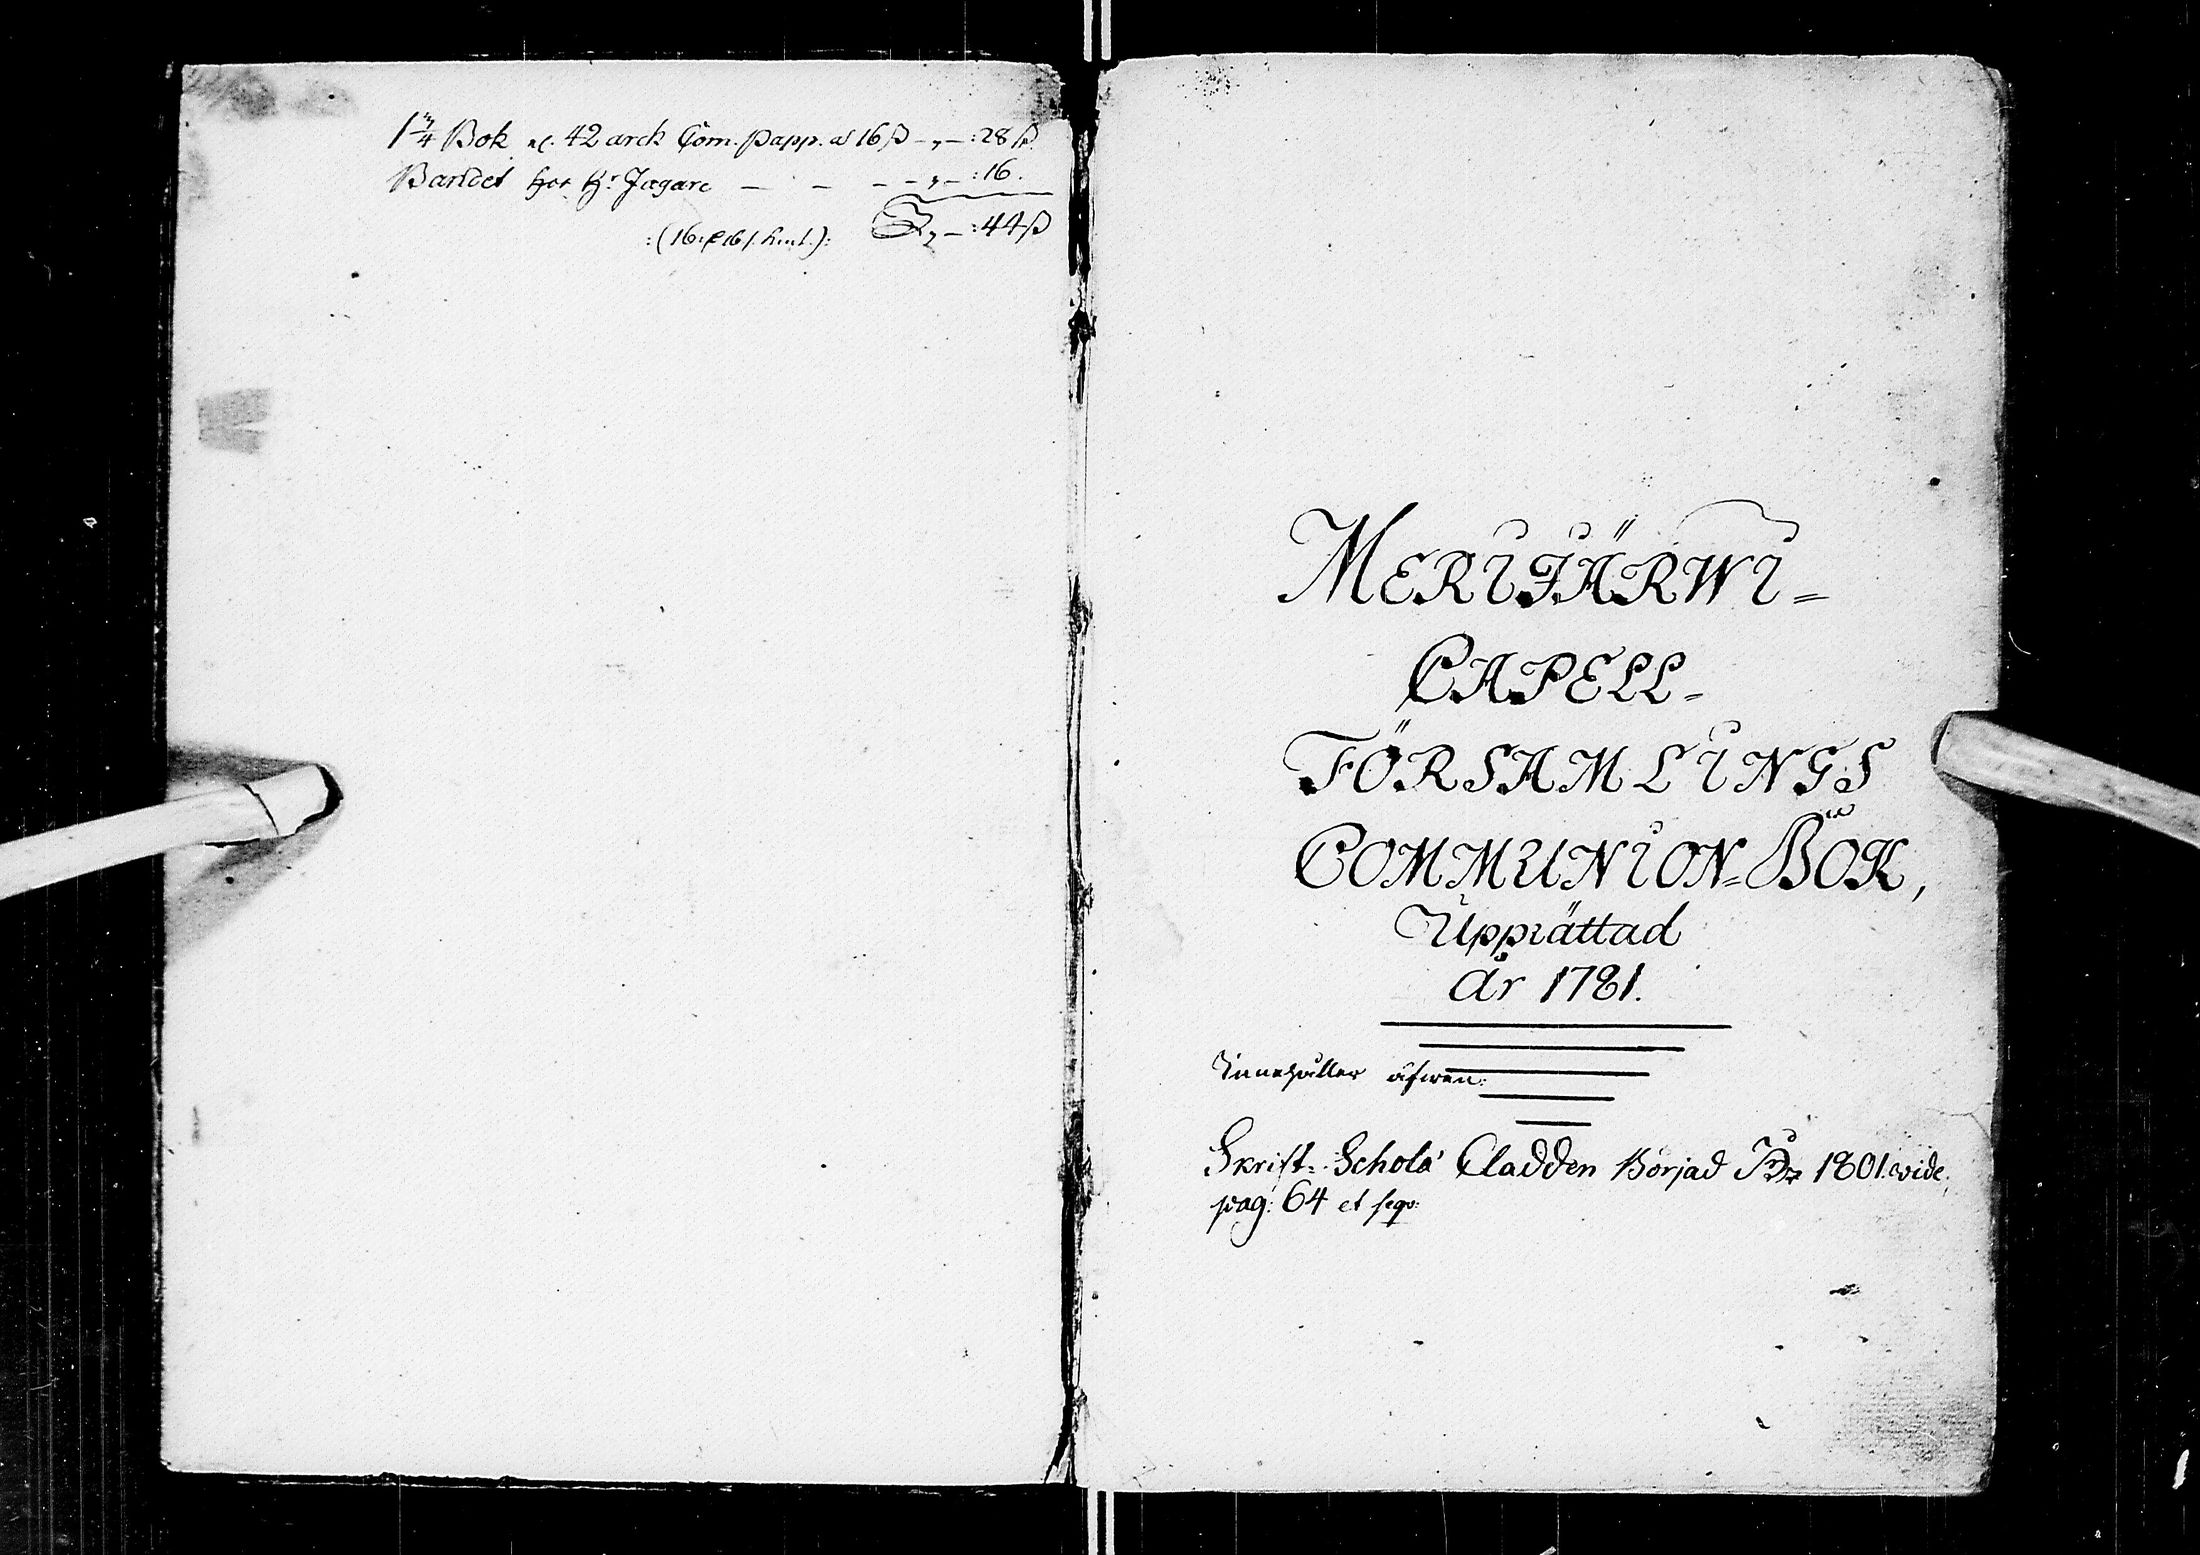 1¾ Bok el. 42 arck Com. papp. a 16 ß -,-: 28 ß.
Bandet hos Hr Jægare - - - -,-: 16.
:(16: ):
R,-: 44 ß
MERIJÄRWI=
CAPELL-
FÖRSAMLINGS
COMMUNION-BOK,
Upprättad
År 1781.
Innehåller äfwen:
Skrift-Schola Cladden Börjad 1801. vide.
pag: 64 et seqv: